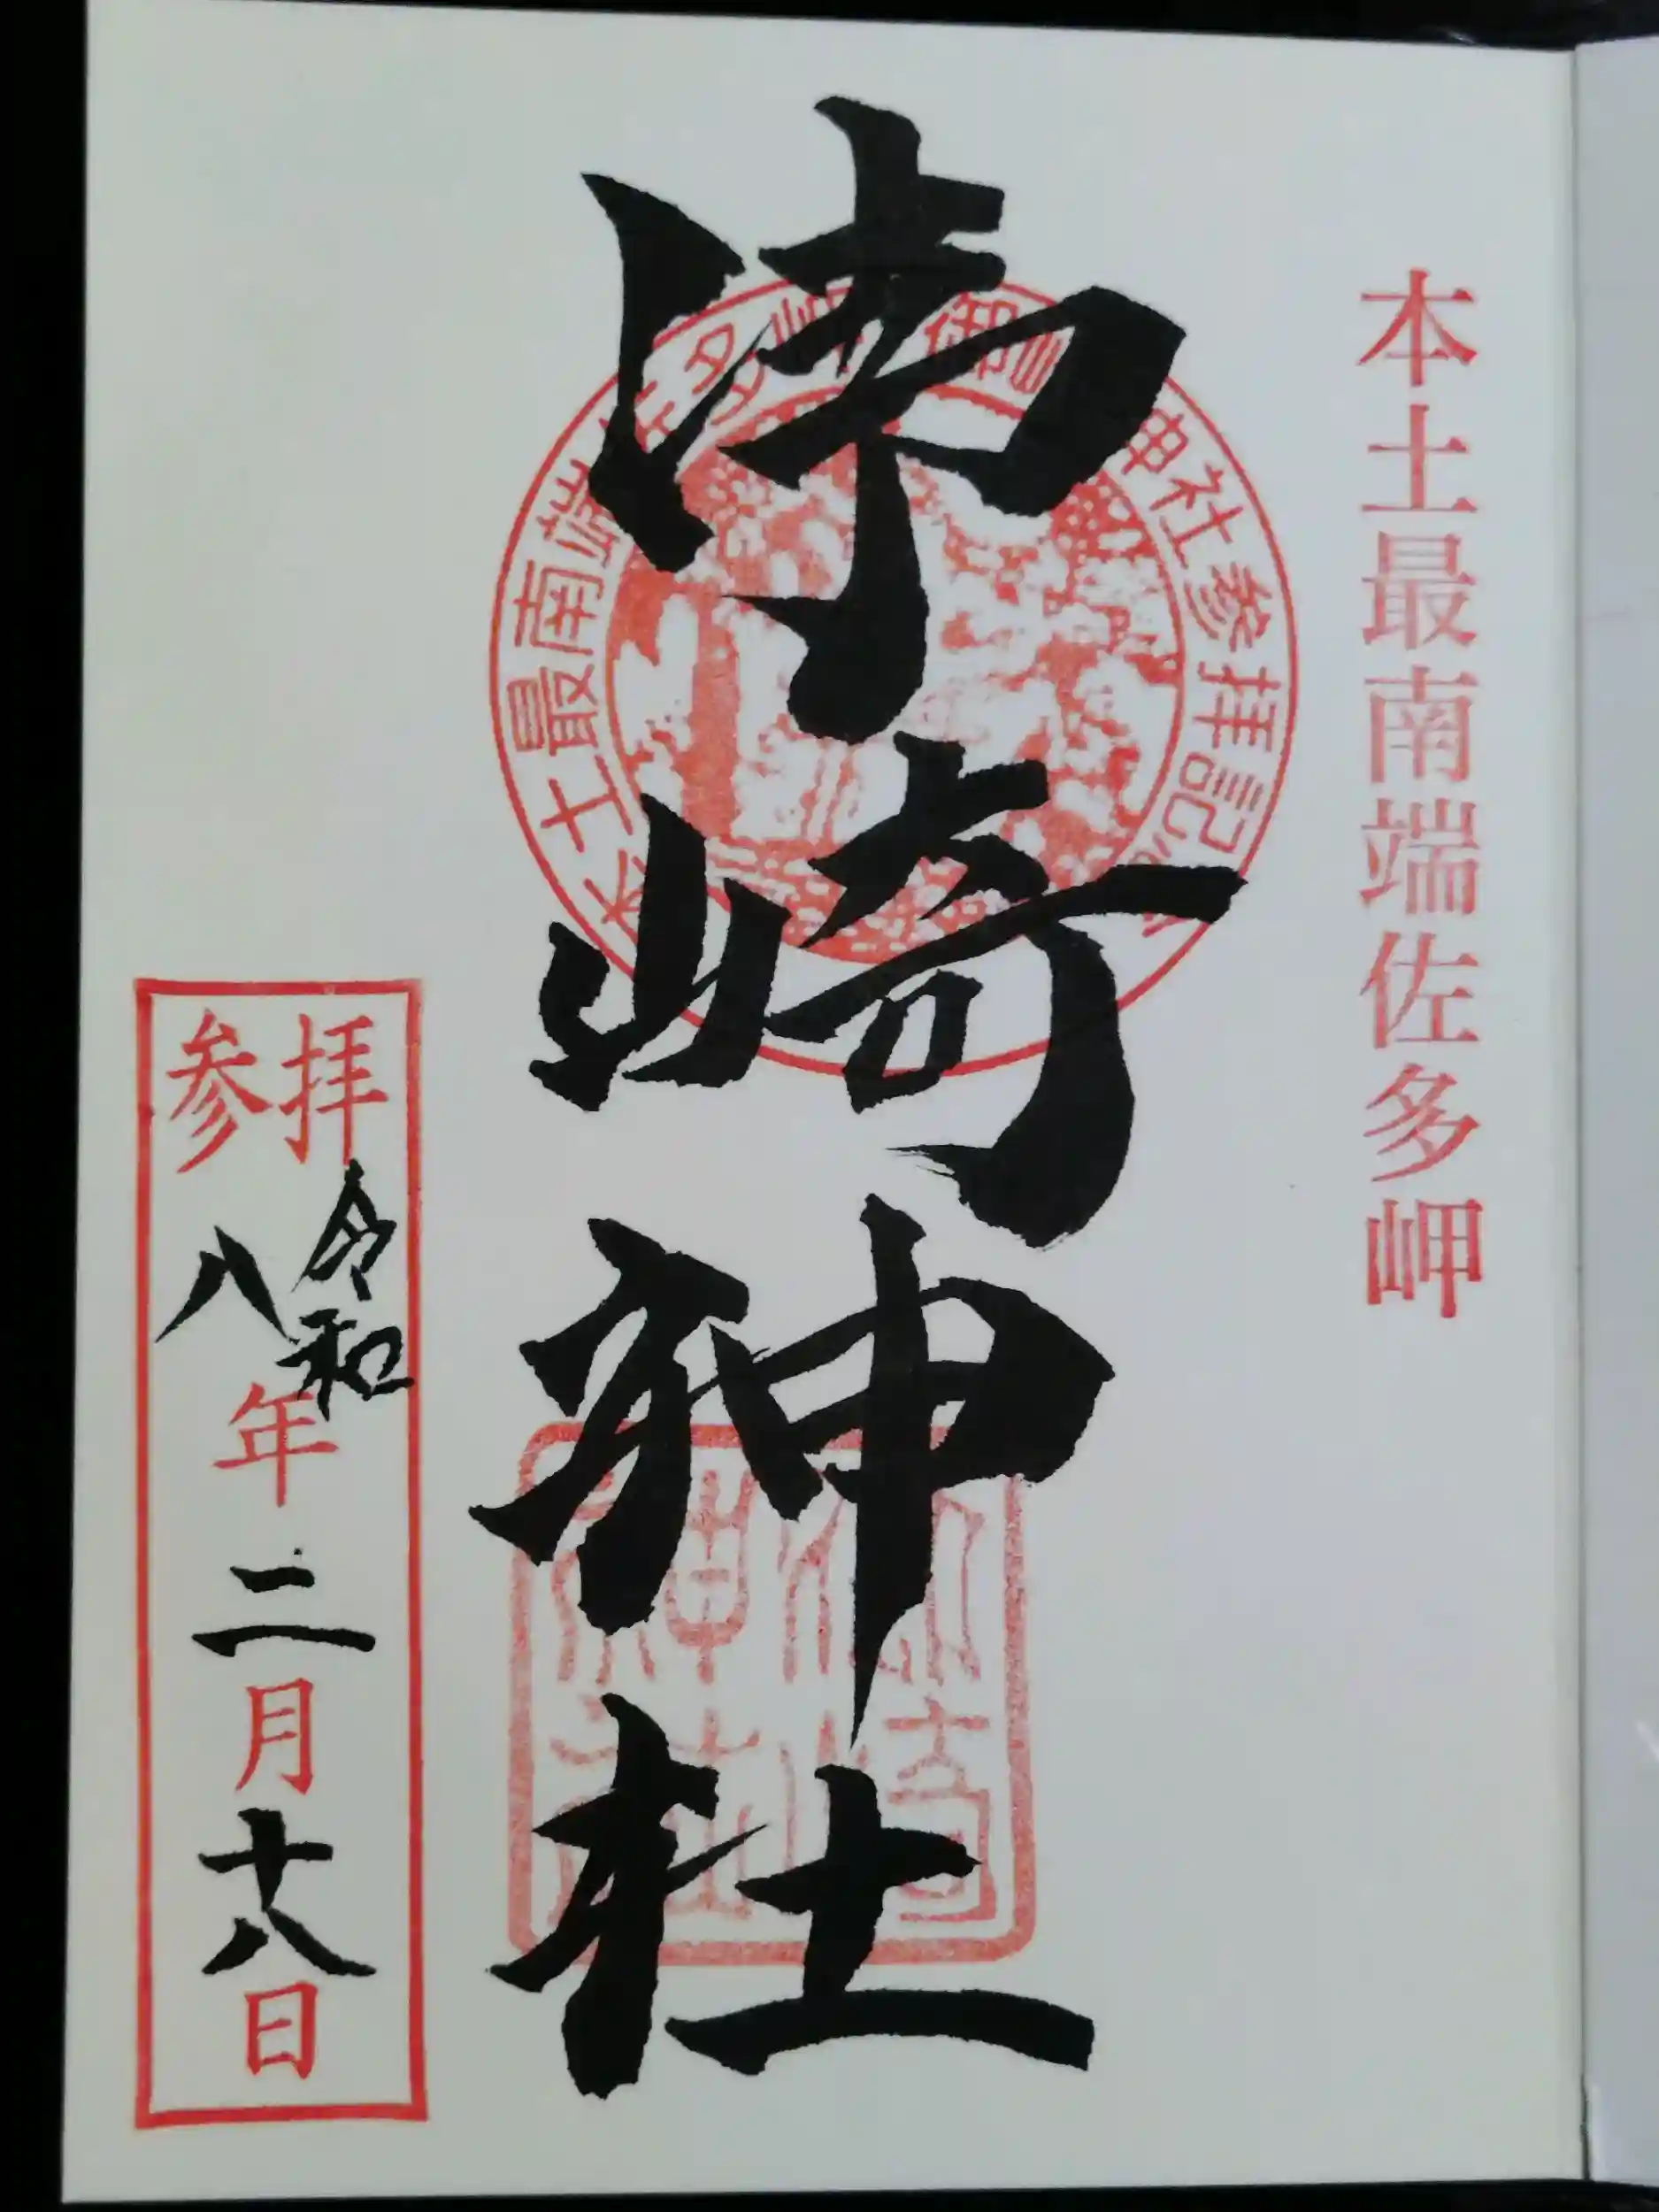 本土最南端佐多岬
御崎神社
本土最南端佐多岬 御崎神社参拝記念
御崎神社
参拝
令和
八年二月十八日